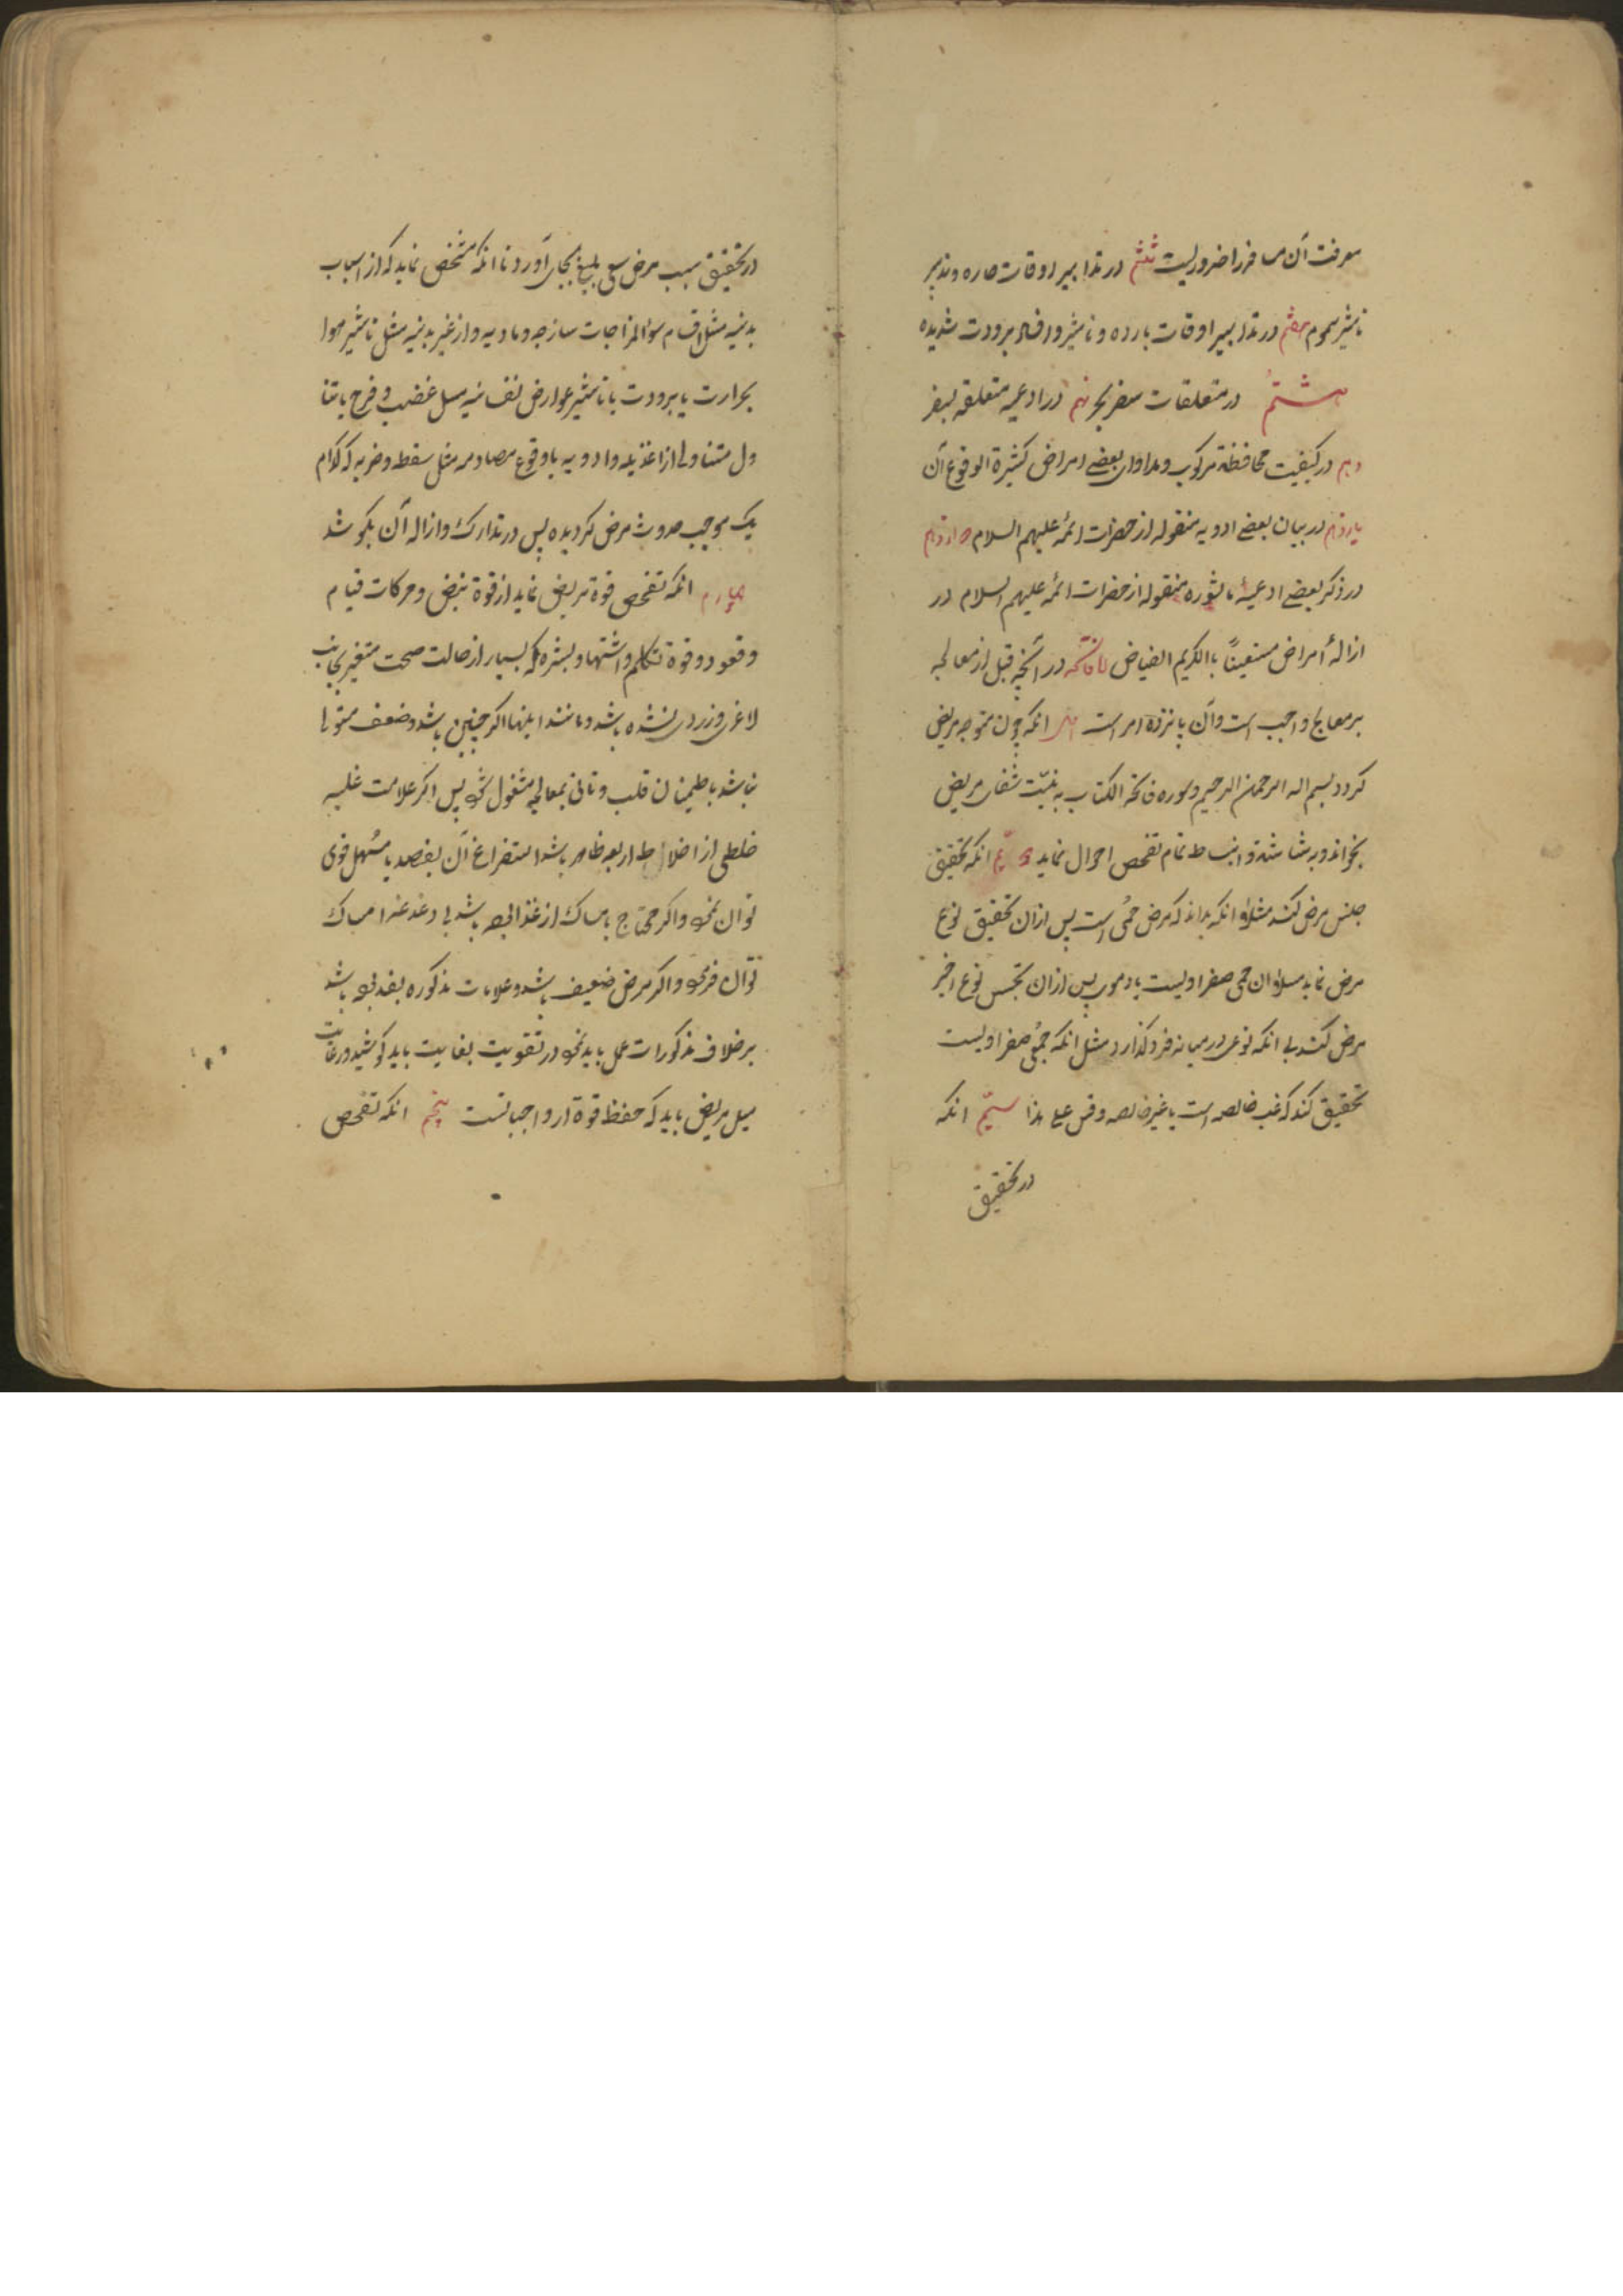 معرفت آن مسافر را ضروریست ششم در تدابیر اوقات حاره و تدبیر
تاثیر سموم هفتم در تدابیر اوقات بارده و تاثیر و افساد برودت شدیده
هشتم در متعلقات سفر بحر نهم در ادعیه متعلقه بسفر
دهم در کیفیت محافظة مرکوب و مداوای بعضے امراض کثیرة الوقوع آن
یازدهم در بیان بعضے ادویه منقوله از حضرات ائمه علیهم السلام دوازدهم
در ذکر بعضے ادعیهٔ ماثوره منقوله از حضرات ائمه علیهم السلام در
ازالهٔ امراض مستعیناً بالکریم الفیاض فاتحه در آنچه قبل از معالجه
بر معالج واجب است و آن پانزده امر است اول انکه چون متوجه مریض
کردد بسم اله الرحمن الرحیم و سوره فاتحة الکتاب به نیّت شفای مریض
بخواند و به بشاشة و انبساط تمام تفحص احوال نماید دویّم انکه تحقیق
جنس مرض کند مثلا انکه بداند که مرض حمی است پس از ان تحقیق نوع
مرض نماید مثلا ان حمی صفراویست یا دموی پس از ان تجسس نوع اخیر
مرض کند بی انکه نوعی در میانه فرو کذارد مثل انکه حمیٔ صفراویست
تحقیق کند که غب خالصه است یا غیر خالصه و قس علی هذا سیّم انکه
در تحقیق
در تحقیق سبب مرض سعی بلیغ بجای آورد تا انکه مشخص نماید که از اسباب
بدنیه مثل اقسام سوالمزاجات ساذجه و مادیه و از غیر بدنیه مثل تاثیر هوا
بحرارت یا برودت یا تاثیر عوارض نفسانیه مثل غضب و فرح یا تنا
ول متناولی از اغذیه و ادویه یا وقوع مصادمه مثل سقطه و ضربه که کدام
یک موجب حدوث مرض کردیده پس در تدارک و ازاله آن بکوشد
چهارم انکه تفحص قوة مریض نماید از قوة نبض و حرکات قیام
و قعود و قوة تکلم و اشتها و بشره که بسیار از حالت صحت متغیر بجانب
لاغری و زردی نشده باشد و مانند اینها اکر چنین باشد و ضعف مستولی
نباشد باطمینان قلب و تانی بمعالجه مشغول شود پس اکر علامت غلبه
خلطی از اخلاط اربعه ظاهر باشد استفراغ آن بفصد یا مسهل قوی
توان نمود و اکر محتاج بامساک از غذا بوده باشد بی دغدغه امساک
توان فرمود و اکر مرض ضعیف باشد و علامات مذکوره بفد بوده باشد
بر خلاف مذکورات عمل باید نمود در تقویت بغایت باید کوشید و رعایت
میل مریض باید که حفظ قوة از واجباتست پنجم انکه تفحص